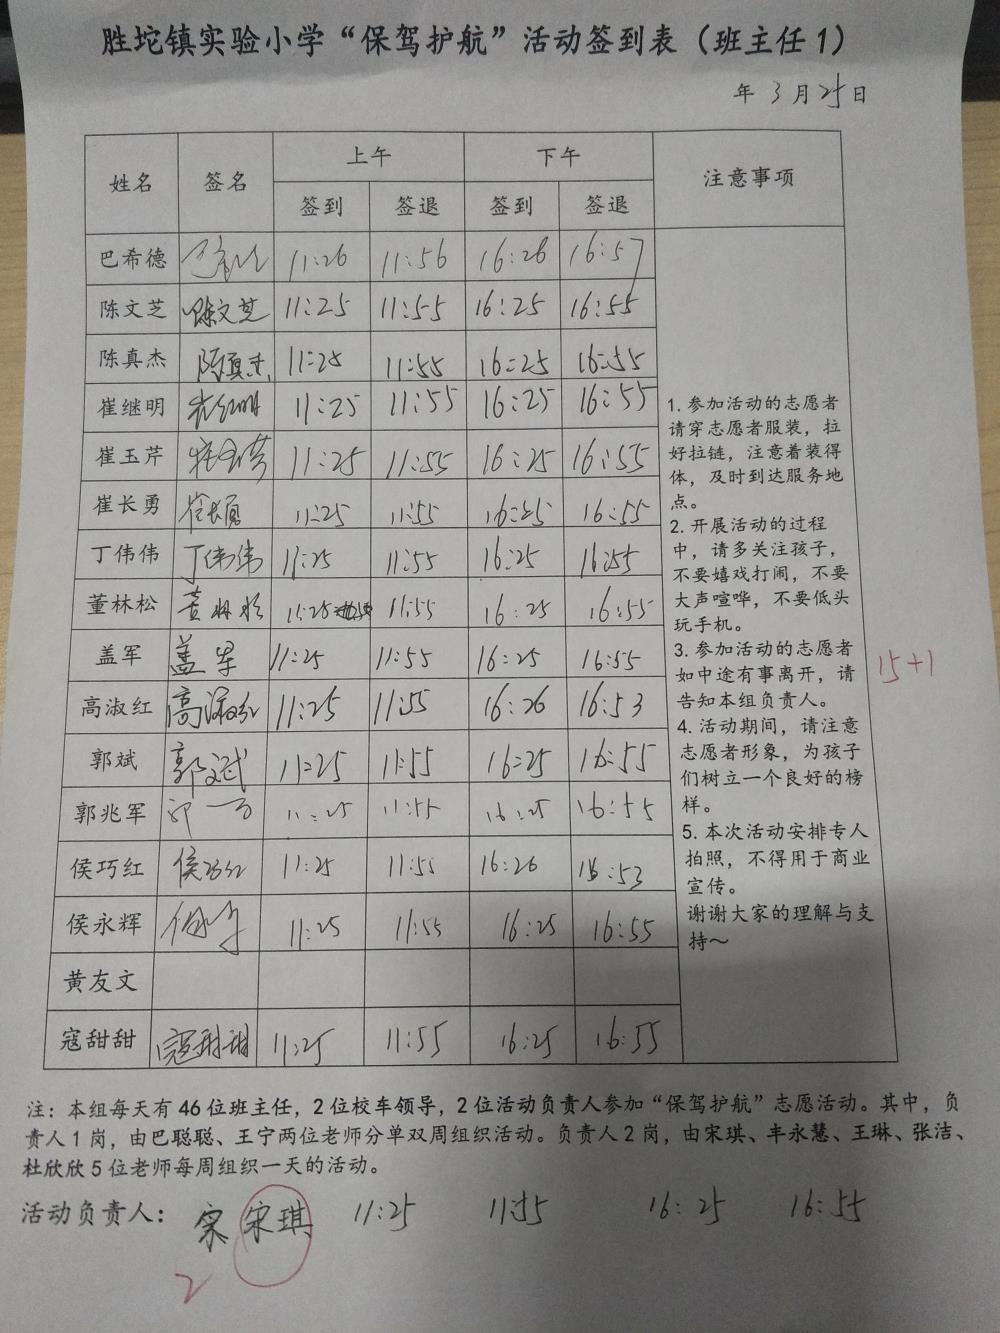 胜坨镇实验小学“保驾护航”活动签到表（班主任1）
年 3 月 25 日
姓名 签名 上午 下午 注意事项
签到 签退 签到 签退
巴希德 11:26 11:56 16:26 16:57
陈文芝 陈文芝 11:25 11:55 16:25 16:55
陈真杰 陈真杰 11:25 11:55 16:25 16:55
崔继明 崔继明 11:25 11:55 16:25 16:55
崔玉芹 崔玉芹 11:25 11:55 16:25 16:55
崔长勇 崔长勇 11:25 11:55 16:25 16:55
丁伟伟 丁伟伟 11:25 11:55 16:25 16:55
董林松 董林松 11:25 11:55 16:25 16:55
盖军 盖军 11:25 11:55 16:25 16:55
高淑红 高淑红 11:25 11:55 16:26 16:53
郭斌 郭斌 11:25 11:55 16:25 16:55
郭兆军 11:25 11:55 16:25 16:55
侯巧红 侯巧红 11:25 11:55 16:26 16:53
侯永辉 11:25 11:55 16:25 16:55
黄友文
寇甜甜 寇甜甜 11:25 11:55 16:25 16:55
1. 参加活动的志愿者
请穿志愿者服装，拉
好拉链，注意着装得
体，及时到达服务地
点。
2. 开展活动的过程
中，请多关注孩子，
不要嬉戏打闹，不要
大声喧哗，不要低头
玩手机。
3. 参加活动的志愿者
如中途有事离开，请
告知本组负责人。
4. 活动期间，请注意
志愿者形象，为孩子
们树立一个良好的榜
样。
5. 本次活动安排专人
拍照，不得用于商业
宣传。
谢谢大家的理解与支
持～
15+1
注：本组每天有 46 位班主任，2 位校车领导，2 位活动负责人参加“保驾护航”志愿活动。其中，负
责人 1 岗，由巴聪聪、王宁两位老师分单双周组织活动。负责人 2 岗，由宋琪、丰永慧、王琳、张洁、
杜欣欣 5 位老师每周组织一天的活动。
活动负责人： 宋 宋琪 11:25 11:55 16:25 16:55
2